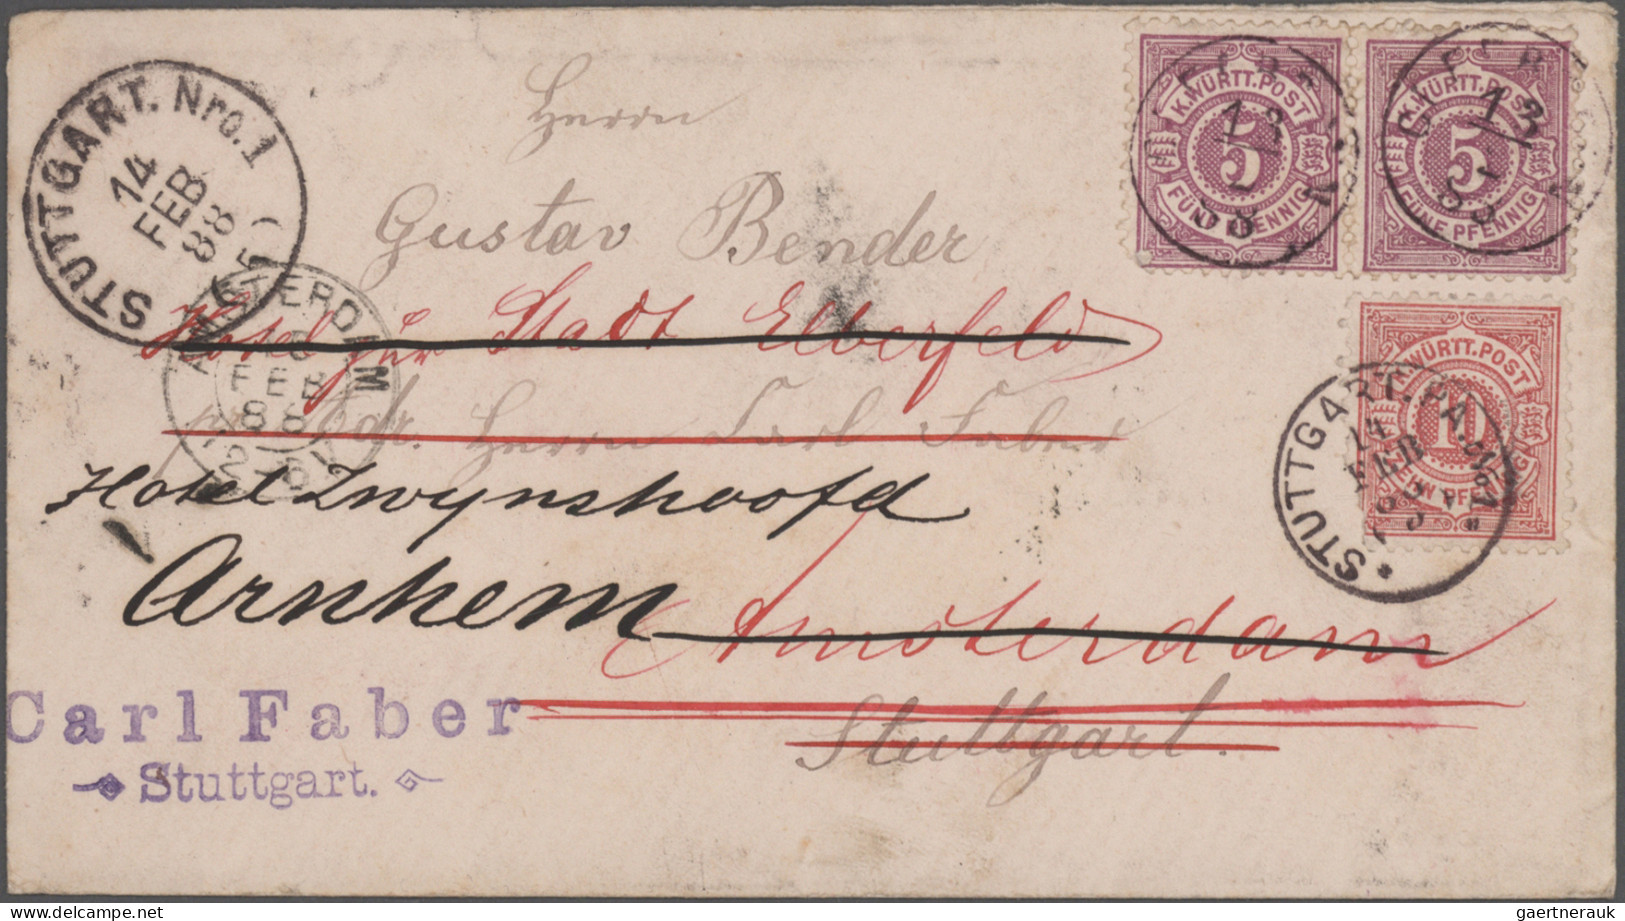 STUTTGART. Nro. 1
14
FEB
88
(5)
Herrn
Gustav Bender
Hotel zur Stadt Elberfeld
Adr. Herrn Carl Faber
Hotel Zwynshoofd
Arnhem
Amsterdam
Stuttgart.
Carl Faber
Stuttgart.
AMSTERDAM
FEB
88
K. WÜRTT. POST
5
FÜNF PFENNIG
13
88
K. WÜRTT. POST
5
FÜNF PFENNIG
13
88
K. WÜRTT. POST
10
ZEHN PFENNIG
STUTTGART. P.A.
14
FEB
gaertnerauk